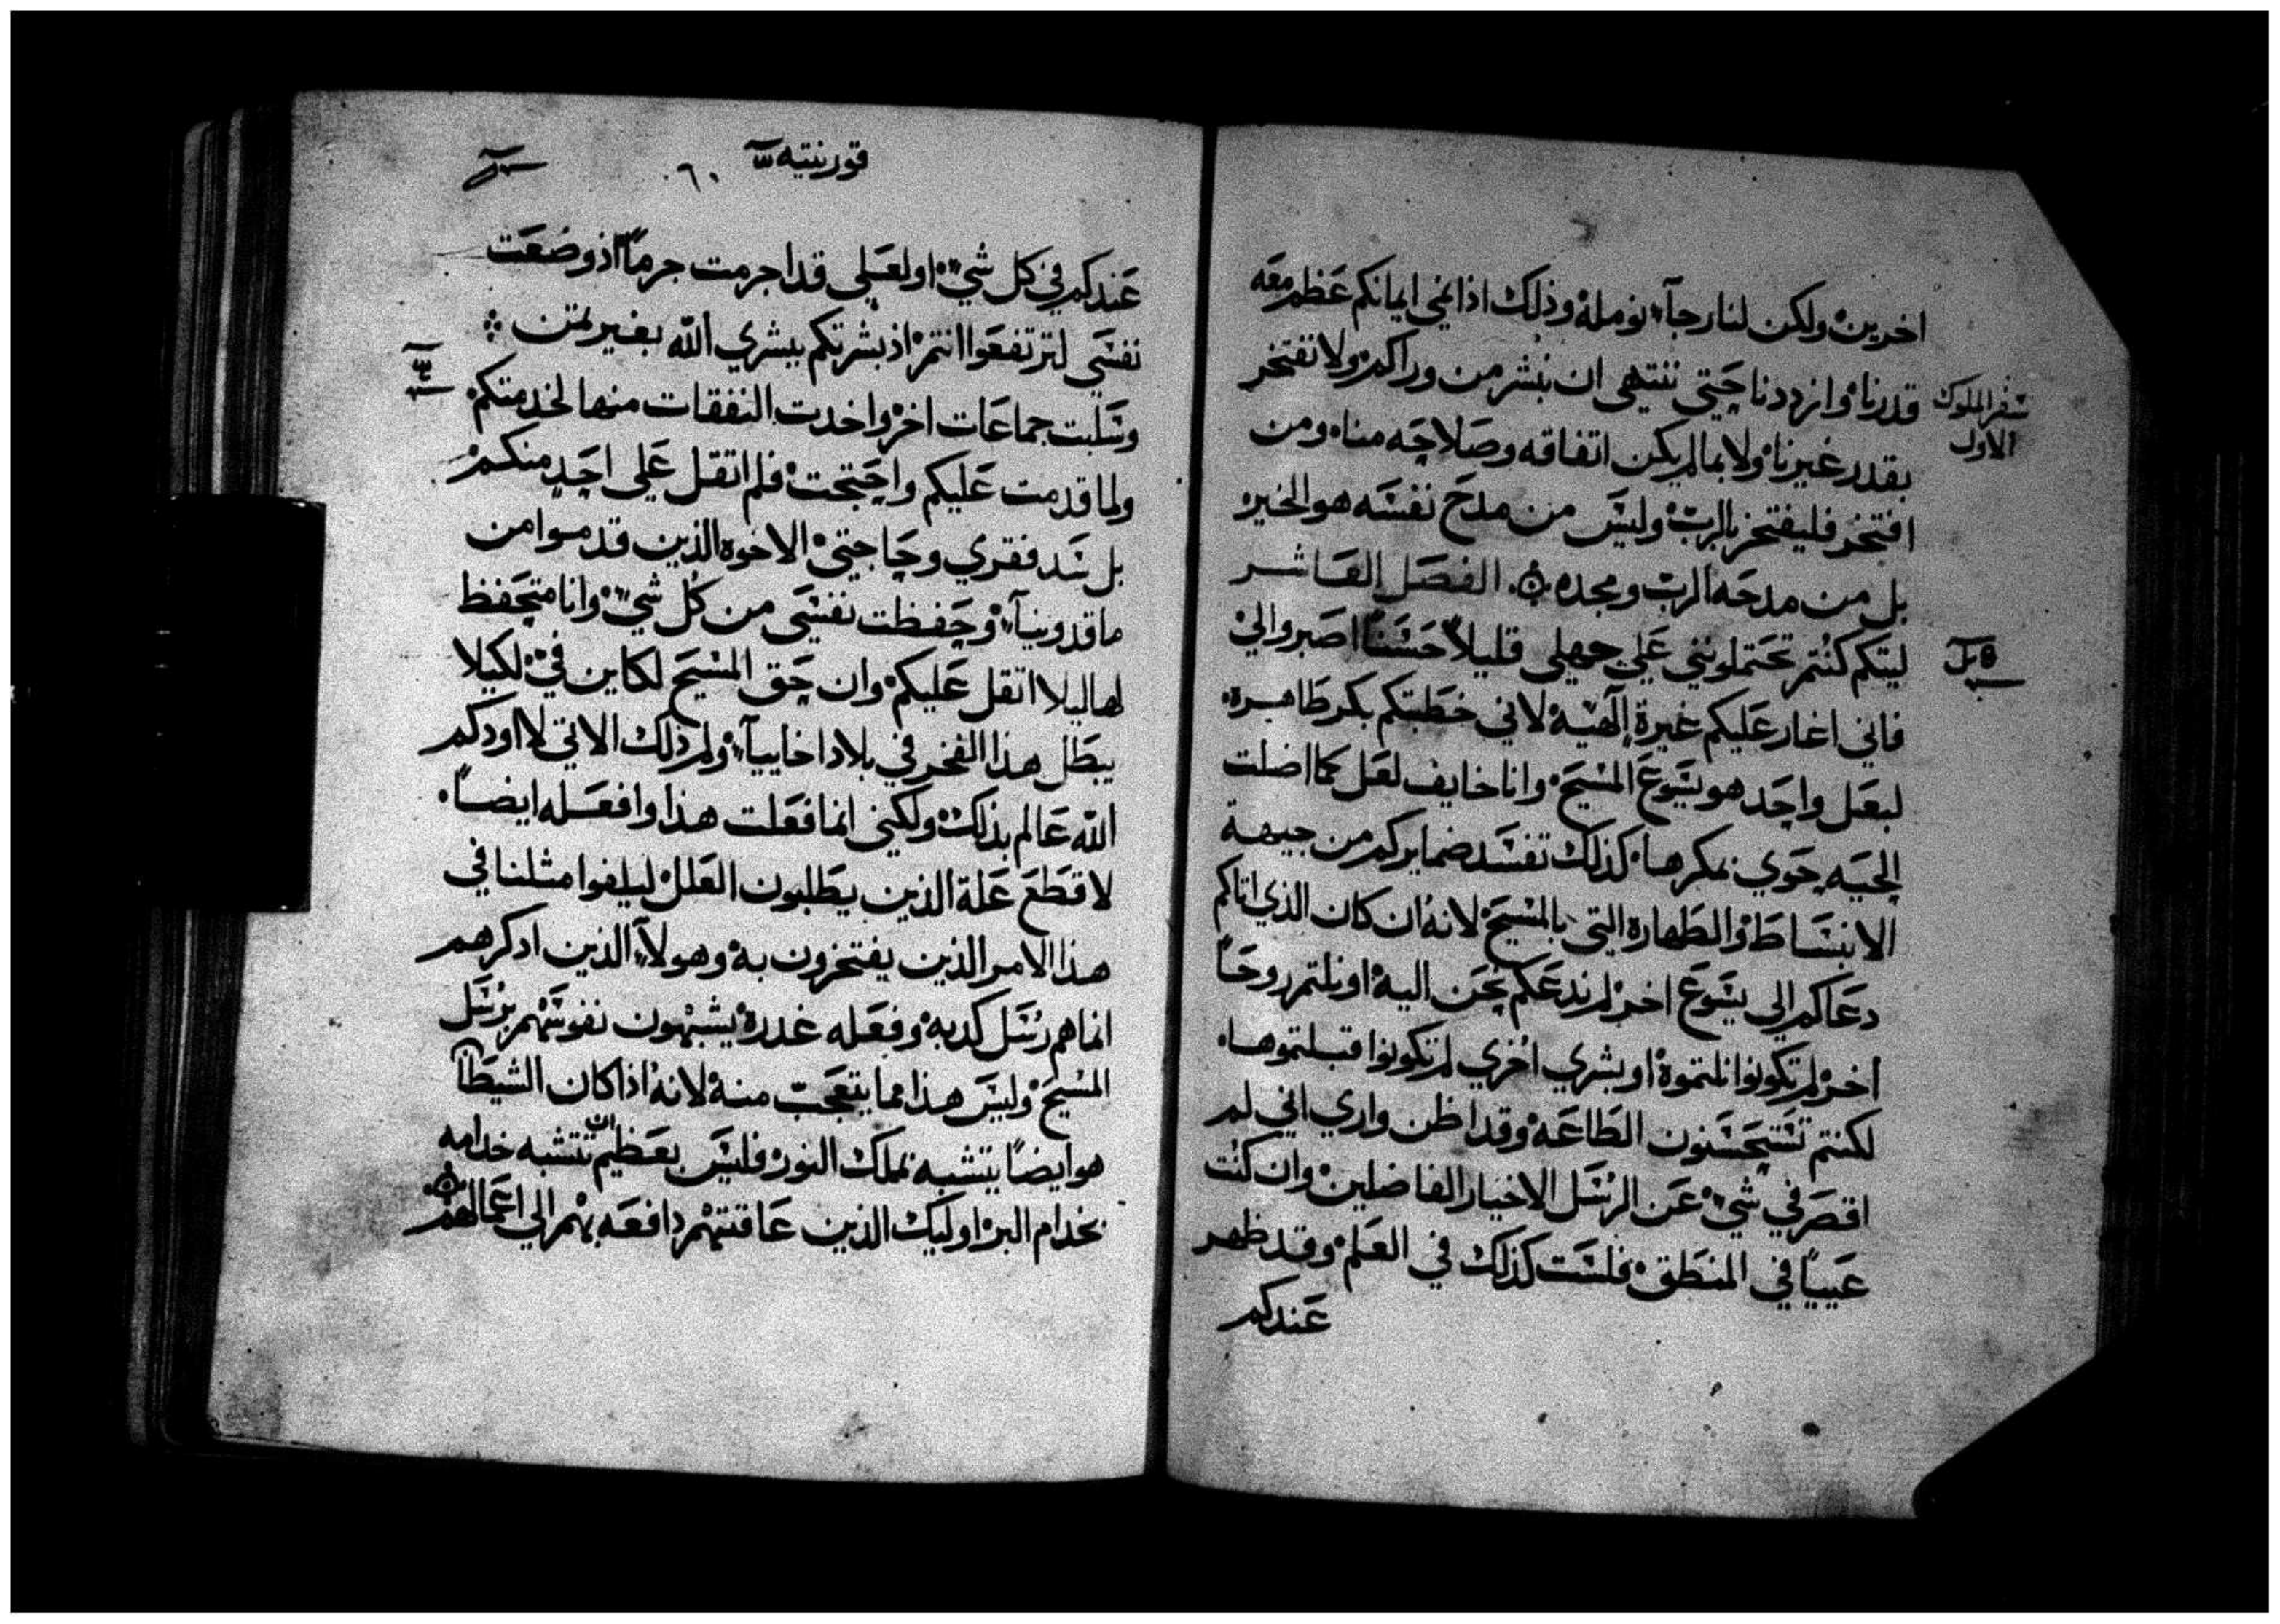 اخرين ولكن لنا رجآء نومله وذلك اذا نمي ايمانكم عظم معه
قدرنا وازددنا حتي ننتهي ان نبشر من وراكم ولا نفتخر
سفر الملوك
الاول
بقدر غيرنا ولا بما لم يكن اتفاقه وصلاحه منا ومن
افتخر فليفتخر بالرب وليس من مدح نفسه هو الخير
بل من مدحه الرب ومجده الفصل العاشر
ليتكم كنتم تحتملونني علي جهلي قليلاً حسناً اصبروا لي
فاني اغار عليكم غيرة الهيه لاني خطبتكم بكر طاهره
لبعل واحد هو يسوع المسيح وانا خايف لعل كما اضلت
الحيه حوي بمكرها كذلك تفسد ضمايركم من جيهة
الانبساط والطهارة التي بالمسيح لانه ان كان الذي اتاكم
دعاكم الي يسوع اخر لم ندعكم نحن اليه او نلتم روحاً
اخر لم تكونوا نلتموه او بشري اخري لم تكونوا قبلتموها
لكنتم تستحسنون الطاعه وقد اظن واري اني لم
اقصر في شي عن الرسل الاخيار الفاضلين وان كنت
عيياً في المنطق فلست كذلك في العلم وقد ظهر
عندكم
قورنتيه ٦٠
عندكم في كل شي او لعلي قد اجرمت جرماً اذ وضعت
نفسي لترتفعوا انتم اذ بشرتكم ببشري الله بغير تمن
وسلبت جماعات اخر واخدت النفقات منها لخدمتكم
ولما قدمت عليكم واحتجت فلم اتقل علي احد منكم
بل سد فقري وحاجتي الاخوه الذين قدموا من
ماقدونيآء وحفظت نفسي من كل شي وانا متحفظ
لها ليلا اتقل عليكم وان حق المسيح لكاين في لكيلا
يبطل هذا الفخر في بلاد اخاييآء ولم ذلك الاني لا اودكم
الله عالم بذلك ولكني انما فعلت هذا وافعله ايضاً
لاقطع علة الذين يطلبون العلل ليلفوا مثلنا في
هذا الامر الذين يفتخرون به وهولآء الذين ادكرهم
انما هم رسل كدبه وفعله غدره يشبهون نفوسهم برسل
المسيح وليس هذا مما يتعجب منه لانه اذا كان الشيطان
هو ايضاً يتشبه بملك النور فليس بعظيم ان تتشبه خدامه
بخدام البر اوليك الذين عاقبتهم دافعه بهم الي اعمالهم